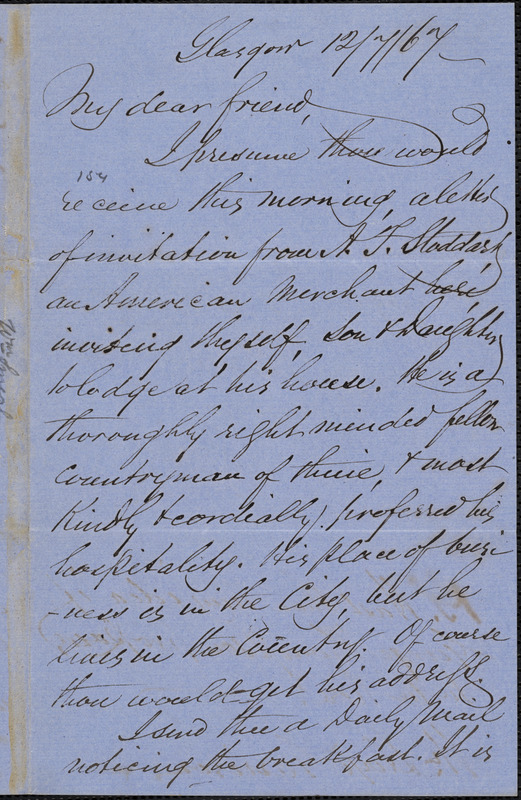 Glasgow 12/7/67
My dear friend,
I presume thou would
154
receive this morning, a letter
of invitation from A. F. Stoddard
an American Merchant here,
inviting thyself, Son & Daughter
to lodge at his house. He is a
thoroughly right minded fellow
Countryman of thine, & most
Kindly & cordially, professed his
hospitality. His place of busi
-ness is in the City, but he
lives in the Country. Of course
thou would get his address.
I send thee a Daily Mail
noticing the breakfast. It is